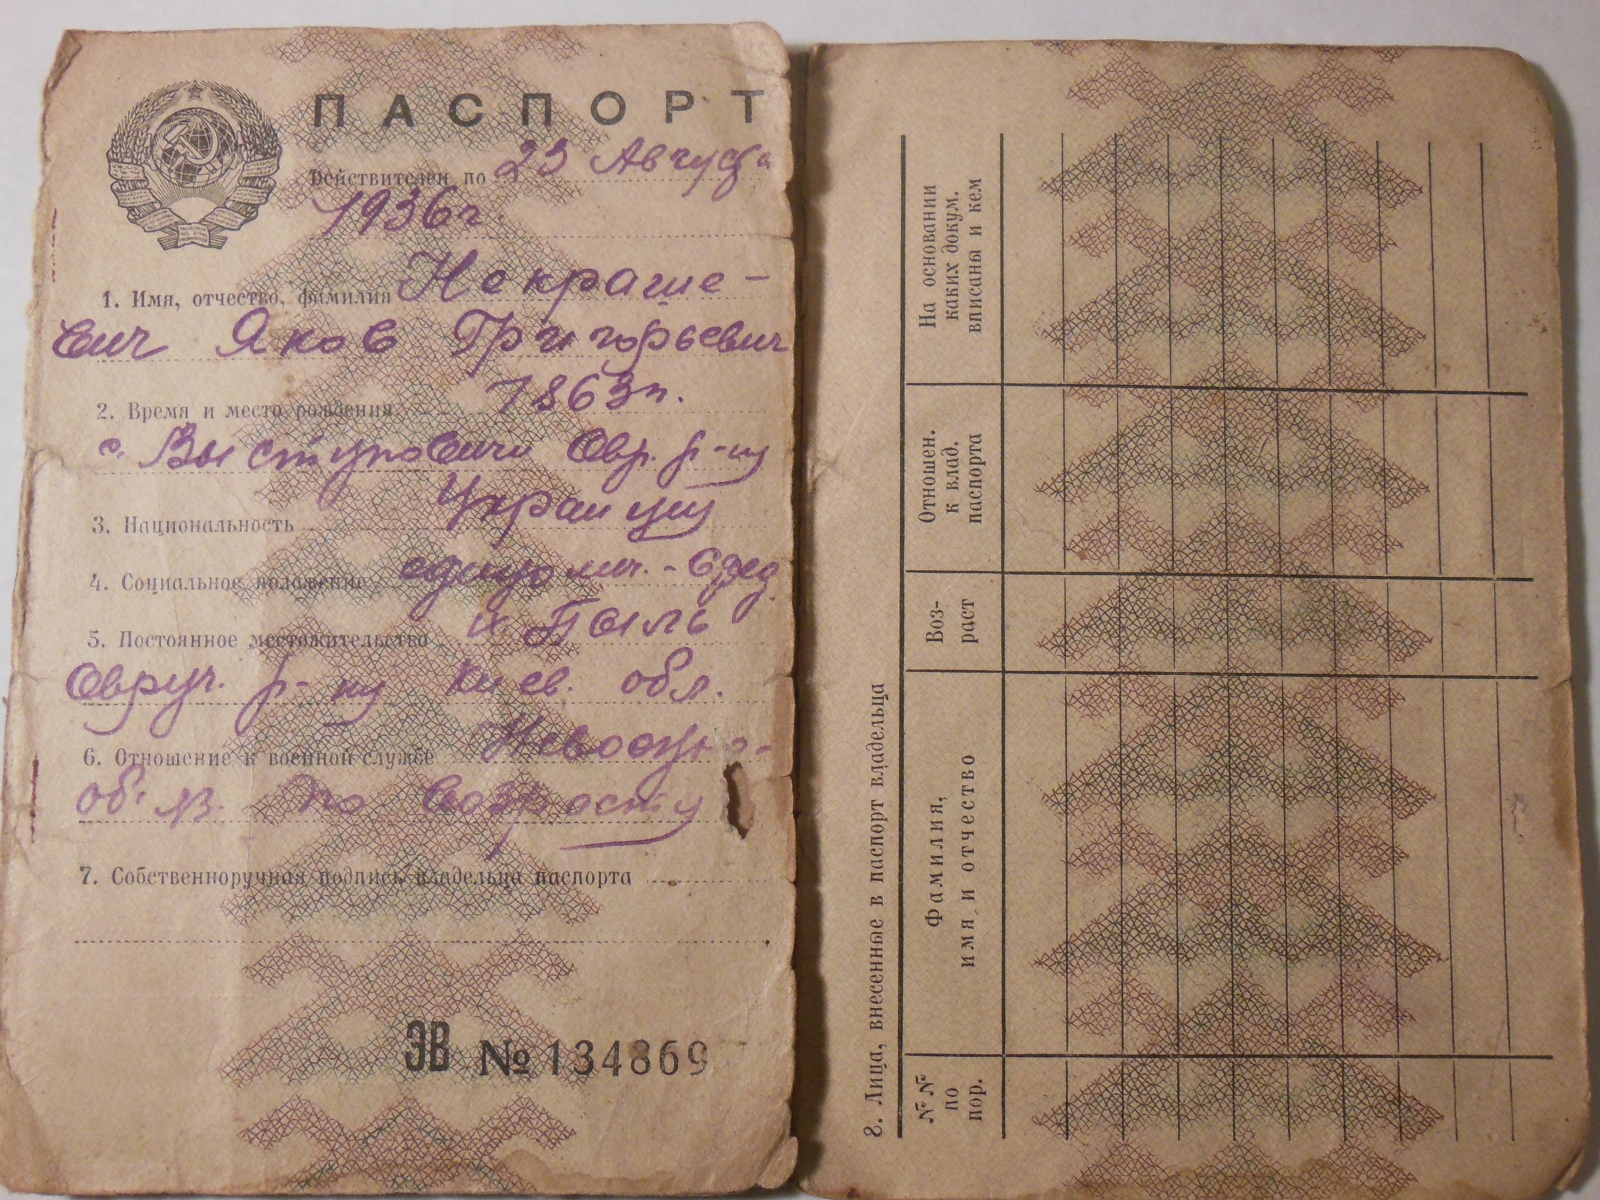 ПАСПОРТ
Действителен по 23 Августа
1936 г.
1. Имя, отчество, фамилия Некраше-
вич Яков Григорьевич
2. Время и место рождения 1863 г.
с. Выступовичи Овр. р-ну
3. Национальность Украинц
4. Социальное положение
5. Постоянное местожительство
Овруч. р-ну Киев. обл.
6. Отношение к военной службе
по возрасту
7. Собственноручная подпись владельца паспорта
ЭВ № 134869
8. Лица, внесенные в паспорт владельца
№№ по пор.
Фамилия, имя и отчество
Воз-
раст
Отношен. к влад. паспорта
На основании каких докум. вписаны и кем